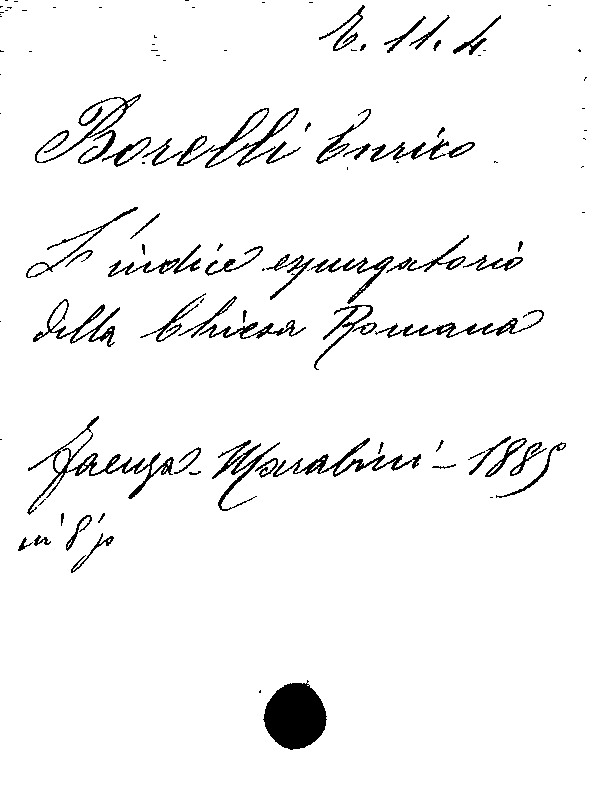 E. 11. 4
Borelli Enrico
L'indice espurgatorio
della Chiesa Romana
Faenza - Marabini - 1885
in 8°